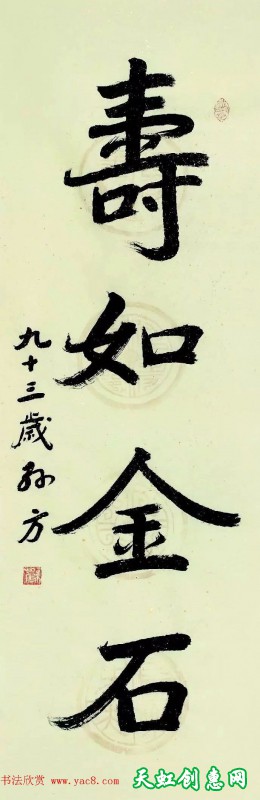 壽如金石
九十三歲孙方
书法欣赏 www.yac8.com
天虹创惠网